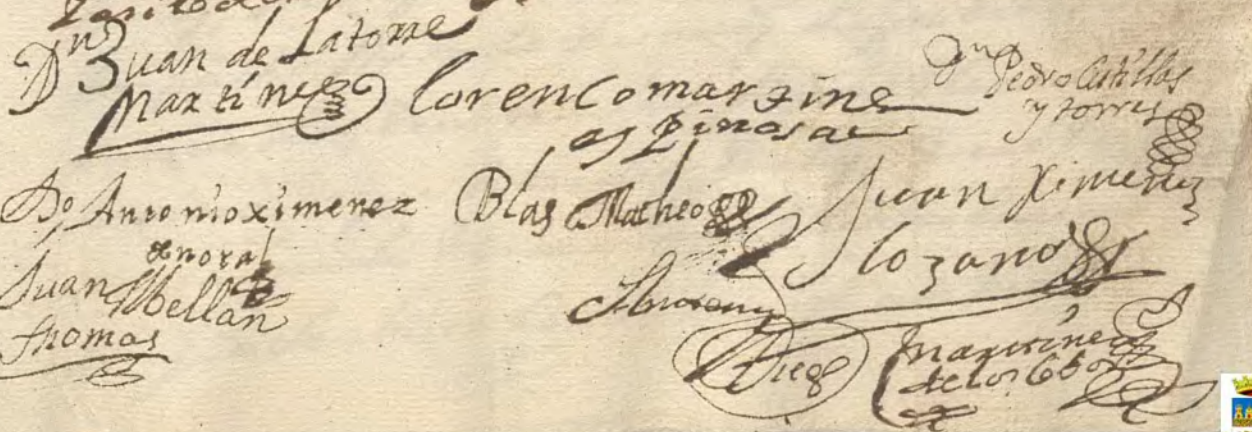 Dn Juan de Latorre
Martínez
Lorenco martine
espinosa
Dn Pedro Castillos
y torres
Do Antonio ximenez
Blas Matheo
Juan Ximenez
Lozano
Juan Abellan
thomas
Diego
martinez
de los